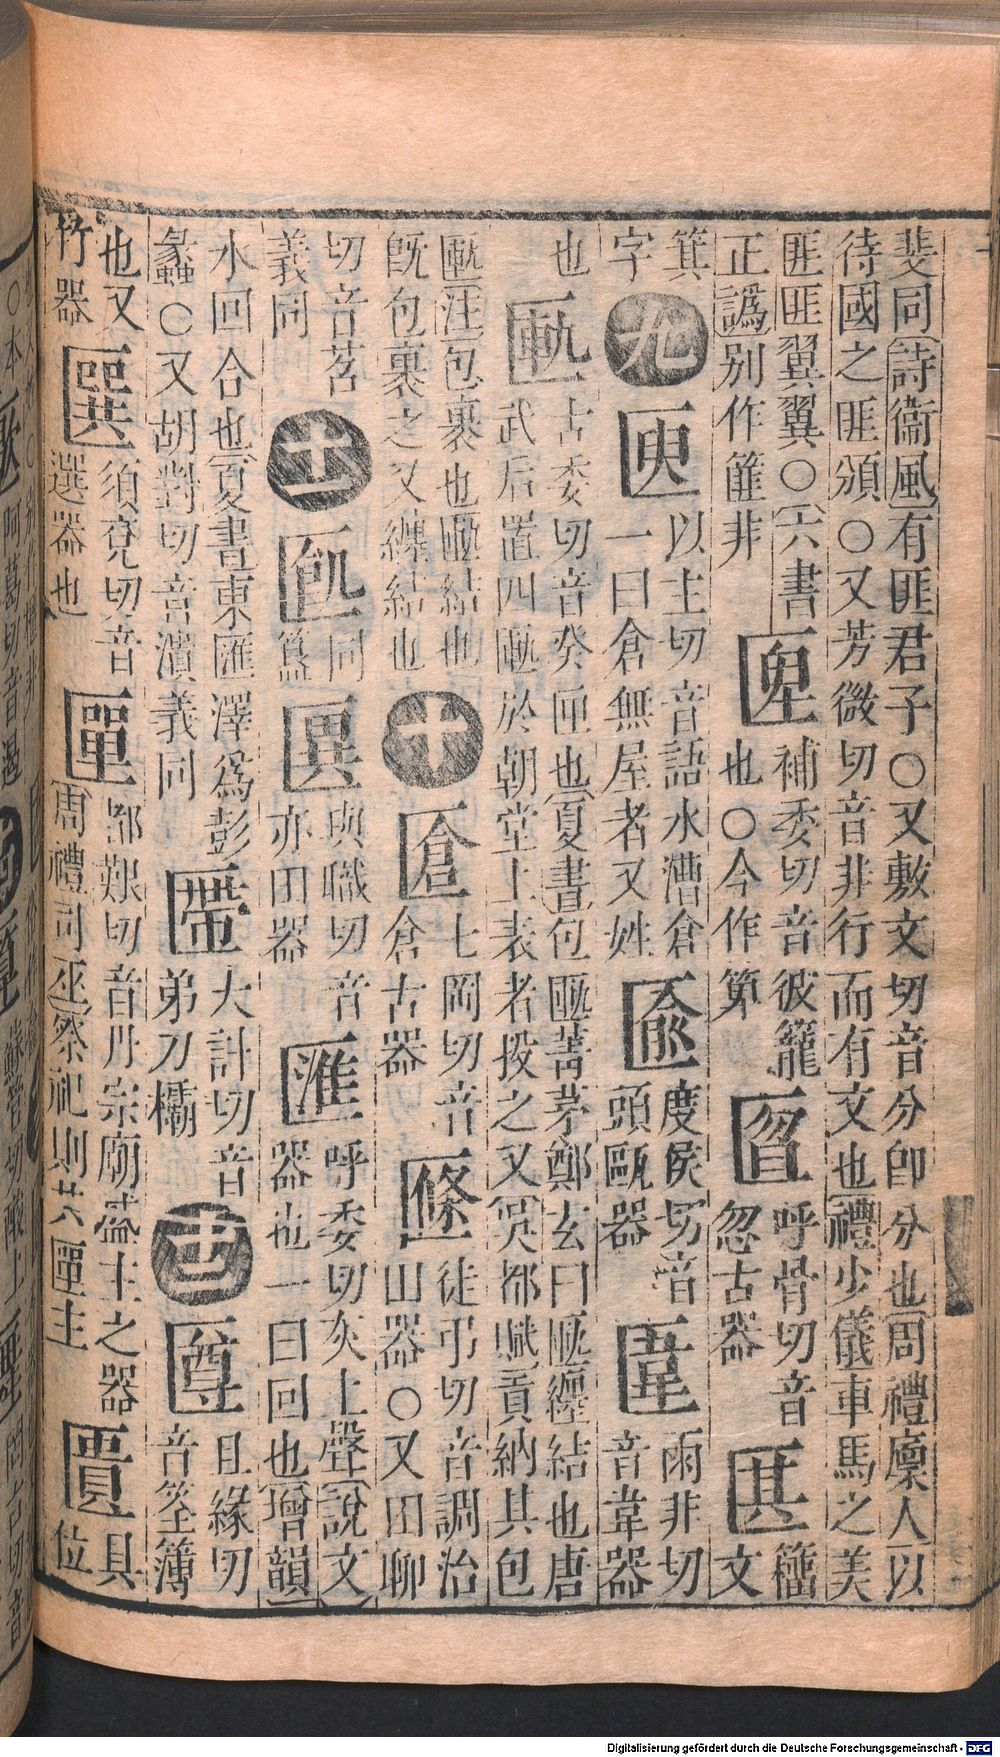 斐同詩衞風有匪君子○又敷文切音分卽分也周禮廩人以
待國之匪頒○又芳微切音非行而有文也禮少儀車馬之美
匪匪翼翼○六書
正譌別作篚非
匣補委切音彼籠
也○今作箄
匫呼骨切音
忽古器
匧籀文
箕
字
九
匬以主切音語水漕倉
一曰倉無屋者又姓
匬度侯切音
頭甌器
雨非切
音韋器
也
匭古委切音癸匣也夏書包匭菁茅鄭玄曰匭纏結也唐
武后置四匭於朝堂上表者投之又吳都賦貢納其包
匭注包裹也匭結也
旣包裹之又纏結也
十
匨七岡切音
倉古器
匫徒弔切音調治
山器○又田聊
切音苕
義同
十一
同
簋
匴與職切音
亦田器
匯呼委切灰上聲說文
器也一曰回也增韻
水回合也夏書東匯澤爲彭
蠡○又胡對切音潰義同
大計切音
弟刀欛
十二
且緣切
音筌簿
也又須兗切音
竹器
選器也
匰都艱切音丹宗廟盛主之器
周禮司巫祭祀則共匰主
匱具位
Digitalisierung gefördert durch die Deutsche Forschungsgemeinschaft - DFG